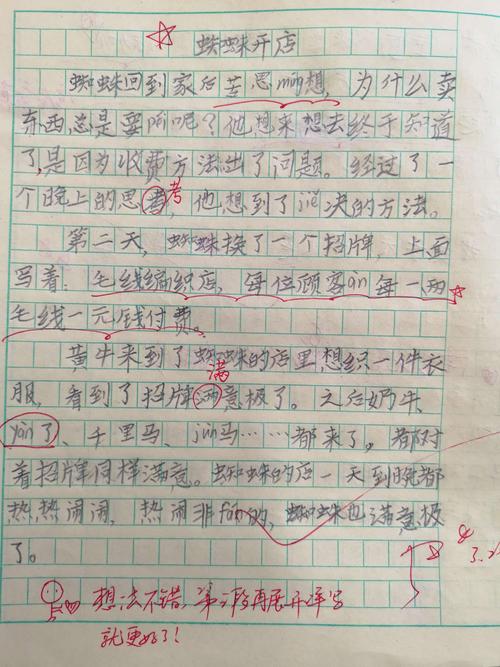 蜘蛛开店
蜘蛛回到家后苦思mìng想，为什么卖
东西，总是要所呢？他想来想去终于知道
了，是因为收费方法出了问题。经过了一
个晚上的思考，考他想到了jiě决的方法。
第二天，蜘蛛换了一个招牌，上面
写着：毛线编织店，每位顾客àn每一两
毛线一元钱付费。
黄牛来到了蜘蛛的店里，想织一件衣
满
服，看到了招牌满意极了。之后奶牛、
千里马、jùn马……都来了，都对
着招牌同样满意。蜘蛛的店一天到晚都
热热闹闹，热闹非fán的，蜘蛛也满意极
了。
想法不错，第二段再展开详写
就更好了！